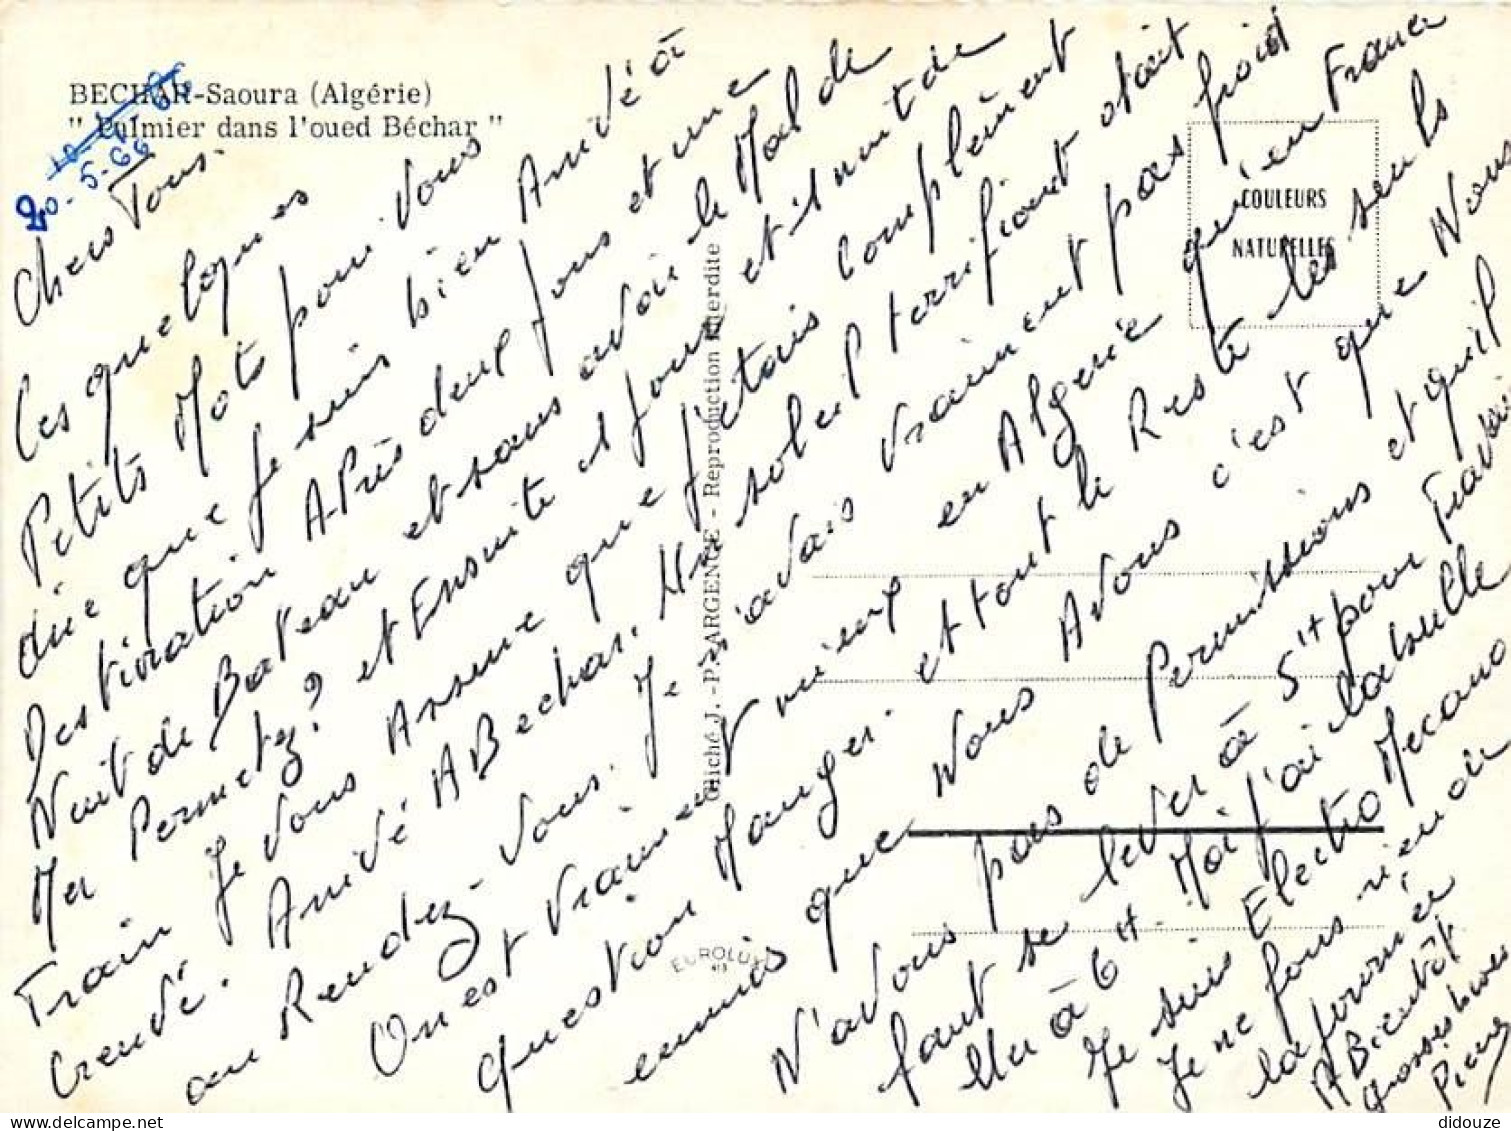 BECHAR-Saoura (Algérie)
" Palmier dans l'oued Béchar "
20-5-66
Chers Tous.
Ces quelques
Petits Mots pour Vous
dire que je suis bien Arrivé à
Destination APrès deux jours et une
Nuit de Bateau et sans avoir le Mal de
Mer Permetez? et Ensuite 1 jour et 1 nuit de
Train Je Vous Assure que j'étais Complèment
Crevé. Arrivé A Bechar. Un soleil terrifiant était
au Rendez-Vous. Je n'avais vraiment pas froid
On est vraiment mieux en Algerie qu'en France
question Manger. et tout le Reste les seuls
ennuis que Nous Avons c'est que Nous
N'avons pas de Permissions et qu'il
faut se lever à 5H pour Travailler
à 6H. Moi j'ai
Je suis Electro Mecano
Je ne fous rien de
la journée
A Bientôt
Grosses bises
Pierre
COULEURS
NATURELLES
Cliché J.-P. ARGENCE - Reproduction interdite
EUROLUX